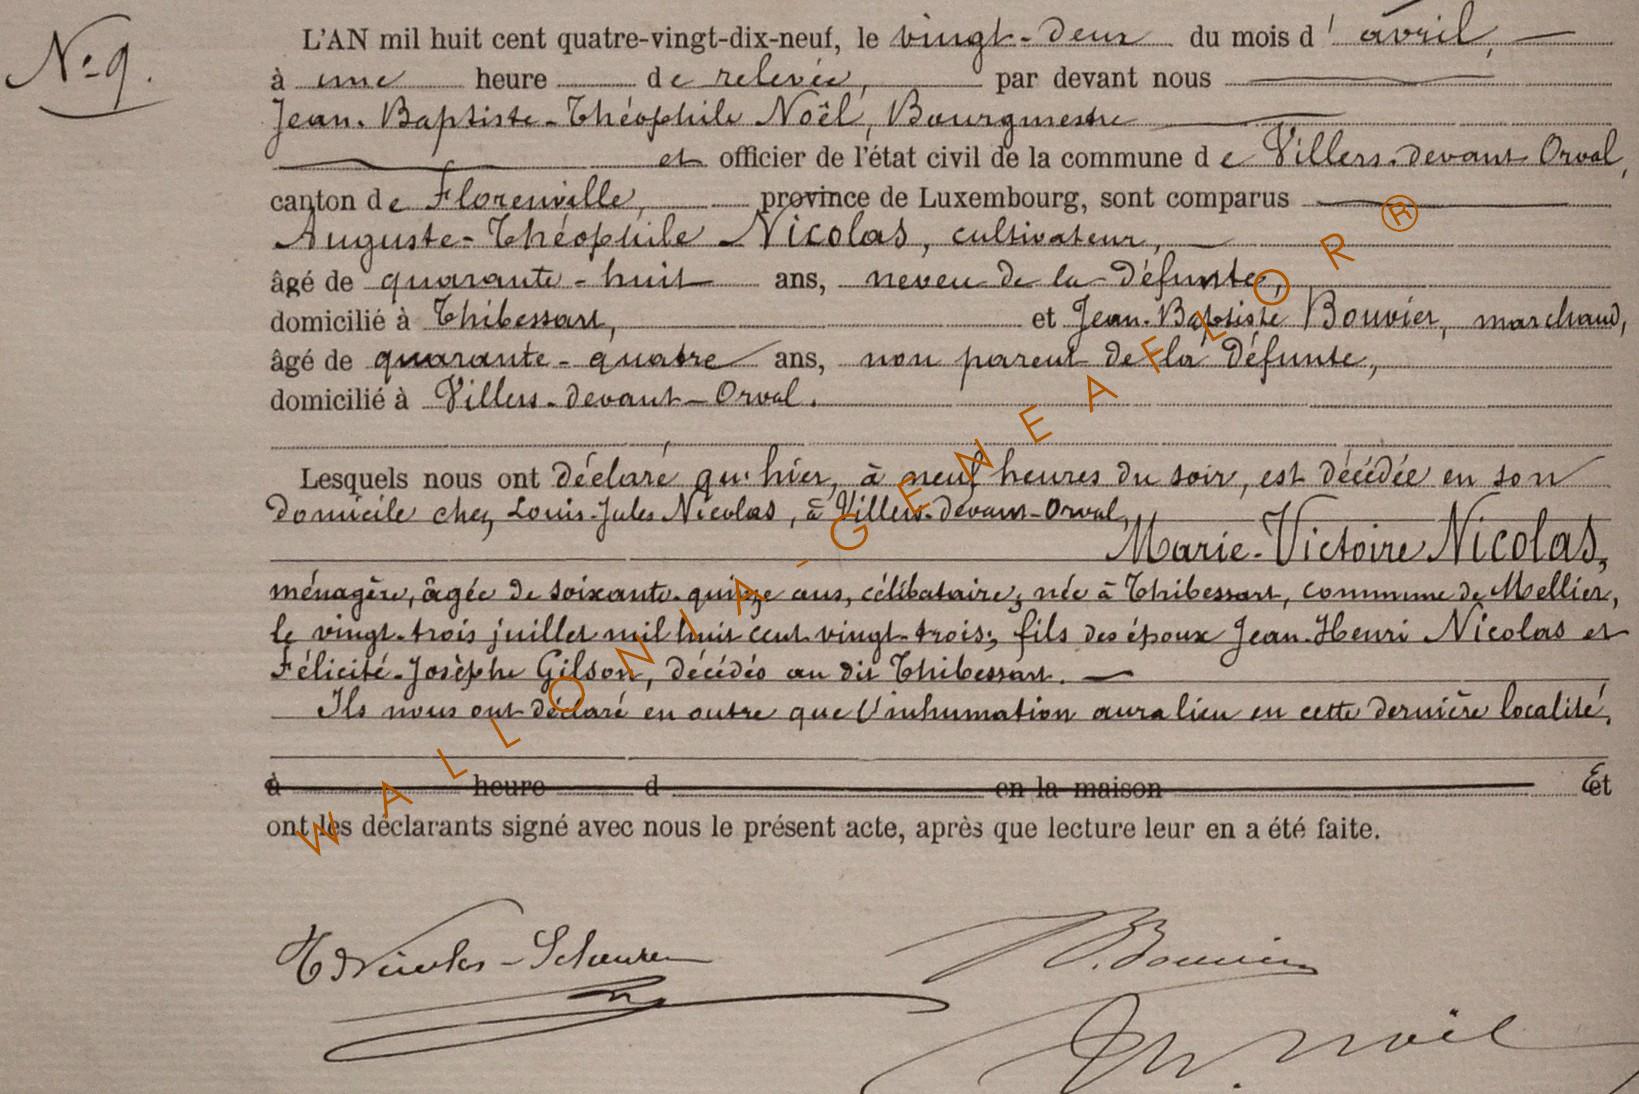 N° 9.
L'AN mil huit cent quatre-vingt-dix-neuf, le vingt-deux du mois d'avril,
à une heure de relevée, par devant nous
Jean-Baptiste-Théophile Noël, Bourgmestre
et officier de l'état civil de la commune de Villers-devant-Orval,
canton de Florenville, province de Luxembourg, sont comparus
Auguste-Théophile Nicolas, cultivateur,
âgé de quarante-huit ans, neveu de la défunte,
domicilié à Thibessart, et Jean-Baptiste Bouvier, marchand,
âgé de quarante-quatre ans, non parent de la défunte,
domicilié à Villers-devant-Orval.
Lesquels nous ont déclaré qu'hier, à neuf heures du soir, est décédée en son
domicile chez Louis-Jules Nicolas, à Villers-devant-Orval,
Marie-Victoire Nicolas,
ménagère, âgée de soixante-quinze ans, célibataire, née à Thibessart, commune de Mellier,
le vingt-trois juillet mil huit cent vingt-trois; fils des époux Jean-Henri Nicolas et
Félicité-Josèphe Gilson, décédés au dit Thibessart.
Ils nous ont déclaré en outre que l'inhumation aura lieu en cette dernière localité.
à heure d en la maison Et
ont les déclarants signé avec nous le présent acte, après que lecture leur en a été faite.
Bouvier
Th. Noël
WALLONIA-GENEAFLOR®